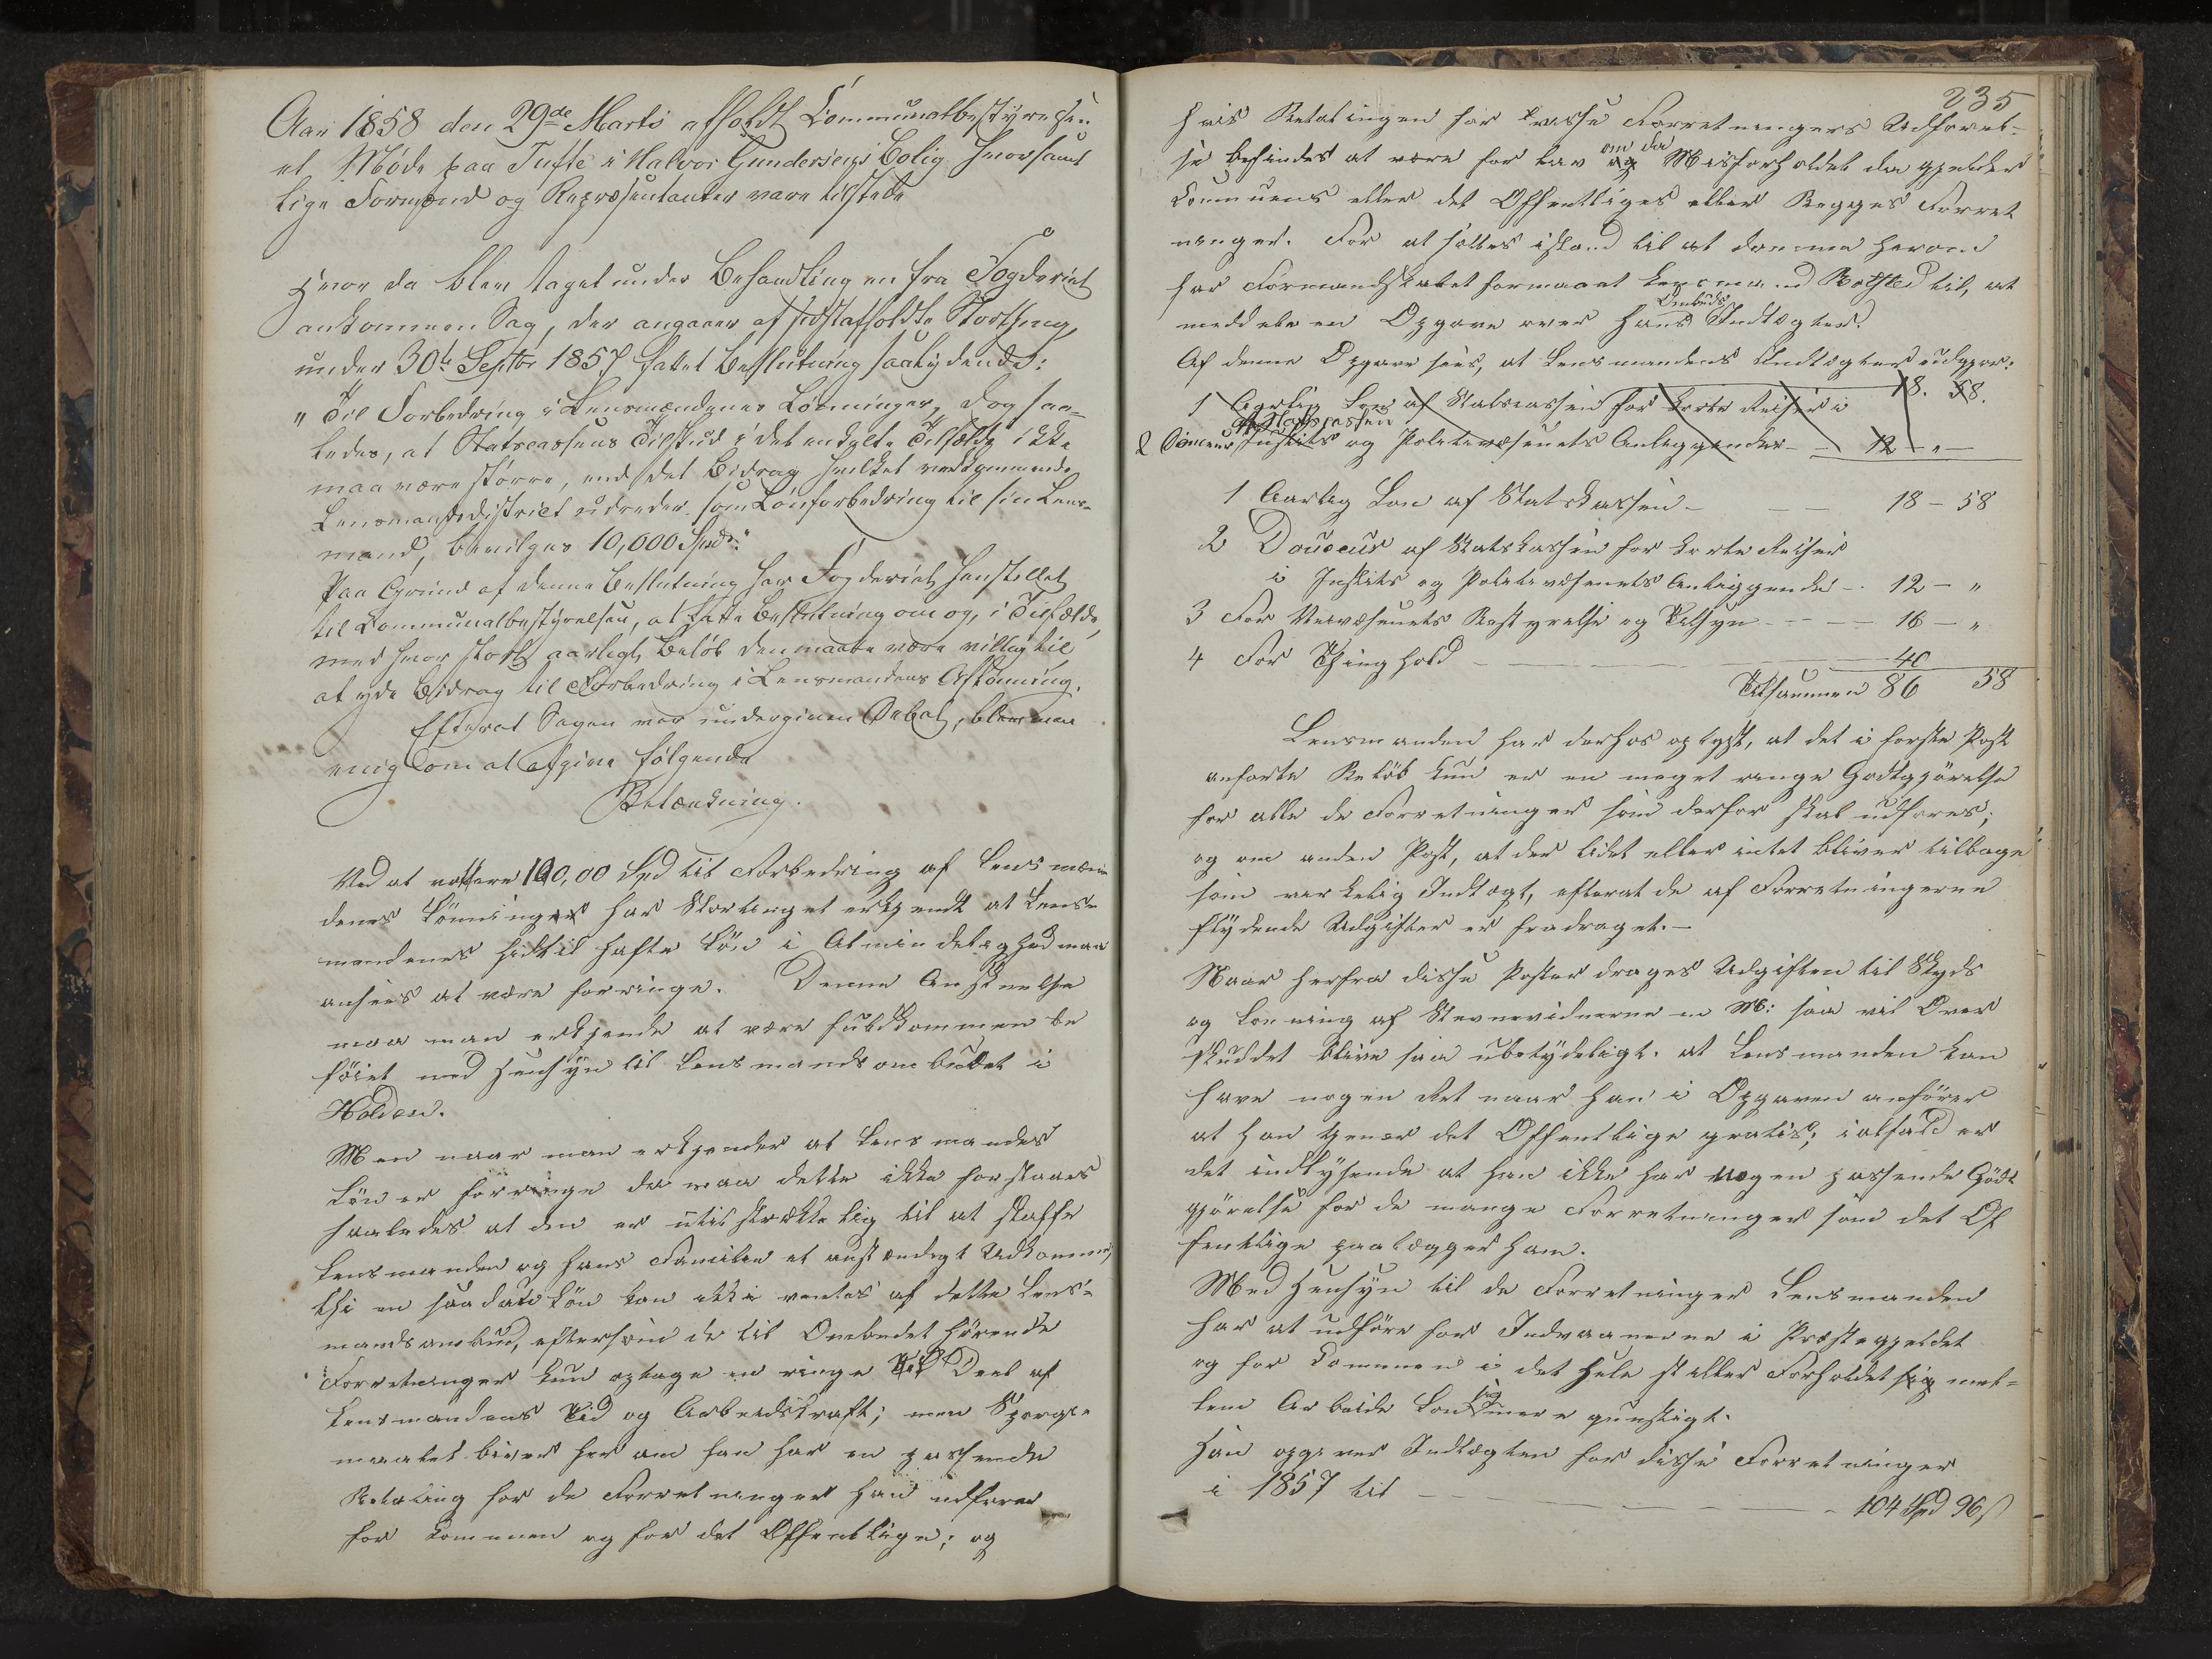 Aar 1858 den 29de Marts afholdt Communalbestyrelsen
et Møde paa Tufte i Halvor Gundersens Bolig hvor samt
lige Formænd og Repræsentanter vare tilstede
Hvor da blev taget under Behandling en fra Fogderiet
ankommen Sag, der angaaer af sidstafholdte Storthing,
under 30te Septbr 1857 fattet Beslutning saalydende:
"Til Forbedring i Lensmændenes Lønninger, dog saa-
ledes, at Statscassens Tilskud i det enkelte Tilfælde ikke
maa være større, end det Bidrag hvilket vedkommende
Lensmandsdistrict udreder som Lønforbedring til sin Lens-
mand, bevilges 10,000 Spd."
Paa Grund af denne Beslutning har Fogderiet henstillet
til Communalbestyrelsen, at fatte Beslutning om og, i Tilfælde,
med hvor stort aarligt Beløb den maatte være villig til
at yde Bidrag til Forbedring i Lensmandens Aflønning.
Efterat Sagen var undergiven Debat, blev man
enig om at afgive følgende
Betænkning.
Ved at votere 100,00 Spd til Forbedring af Lensmæn
denes Lønninger har Stortinget erkjendt at Lens-
mændenes hidtil hafte Løn i Almindelighed maa
ansees at være for ringe. Denne Anskuelse
maa man erkjende at være fuldkommen be
føiet med Hensyn til Lensmandsombudet i
Holden.
Men naar man erkjender at Lensmandes
Løn er for ringe da maa dette ikke forstaaes
saaledes at den er utilstrækkelig til at skaffe
Lensmanden og hans Familie et anstændigt Udkomme,
thi en saadan Løn kan ikke ventes af dette Lens-
mandsombud, eftersom de til Ombudet hørende
Forretninger kun optage en ringe Deel af
Lensmandens Tid og Arbeidskraft; men Spørgs-
maalet bliver her om han har en passende
Betaling for de Forretninger han udfører
for Communen og for det Offentlige; og
235
hvis Betalingen for disse Forretningers Udførel-
se befindes at være for lav om da Misforholdet da gjelder
Communens eller det Offentliges eller Begges Forret
ninger. For at sættes istand til at dømme herom
har Formandskabet formaaet Lensmand Rolsted til, at
meddele en Opgave over hans Ombuds Indtægter.
Af denne Opgave sees, at Lensmandens Indtægter udgjør:
1 Aarlig Løn af Statscassen for korte Reiser i 18. 58.
af Statscassen
2 Douceur Justits og Politivæsenets Anliggender - - 12 - " -
1 Aarlig Løn af Statskassen - - - 18 - 58
2 Douceur af Statskassen for korte Reiser
i Justits og Politivæsenets Anliggender - 12 - "
3 For Veivæsenets Bestyrelse og Tilsyn - - - 16 - "
4 For Thinghold - - - 40
Tilsammen 86 58
Lensmanden har derhos oplyst, at det i første Post
anførte Beløb kun er en meget ringe Godtgjørelse
for alle de Forretninger som derfor skal udføres;
og om anden Post, at der lidet eller intet bliver tilbage
som virkelig Indtægt, efterat de af Forretningerne
flydende Udgifter er fradraget.-
Naar herfra disse Poster drages Udgiften til Skyds
og Lønning af Stevnevidnerne m M: saa vil Over
skuddet blive saa ubetydeligt. at Lensmanden kan
have nogen Ret naar han i Opgaven anfører
at han tjener det Offentlige gratis; ialfald er
det indlysende at han ikke har nogen passende Godt
gjørelse for de mange Forretninger som det Of
fentlige paalægger ham.
Med Hensyn til de Forretninger Lensmanden
har at udføre for Indvaanerne i Præstegjeldet
og for Communen i det Hele stiller Forholdet sig mel-
lem Arbeide Løn sig mere gunstigt.
Han opgiver Indtægten for disse Forretninger
i 1857 til - - - - - 104 Spd 96 ß